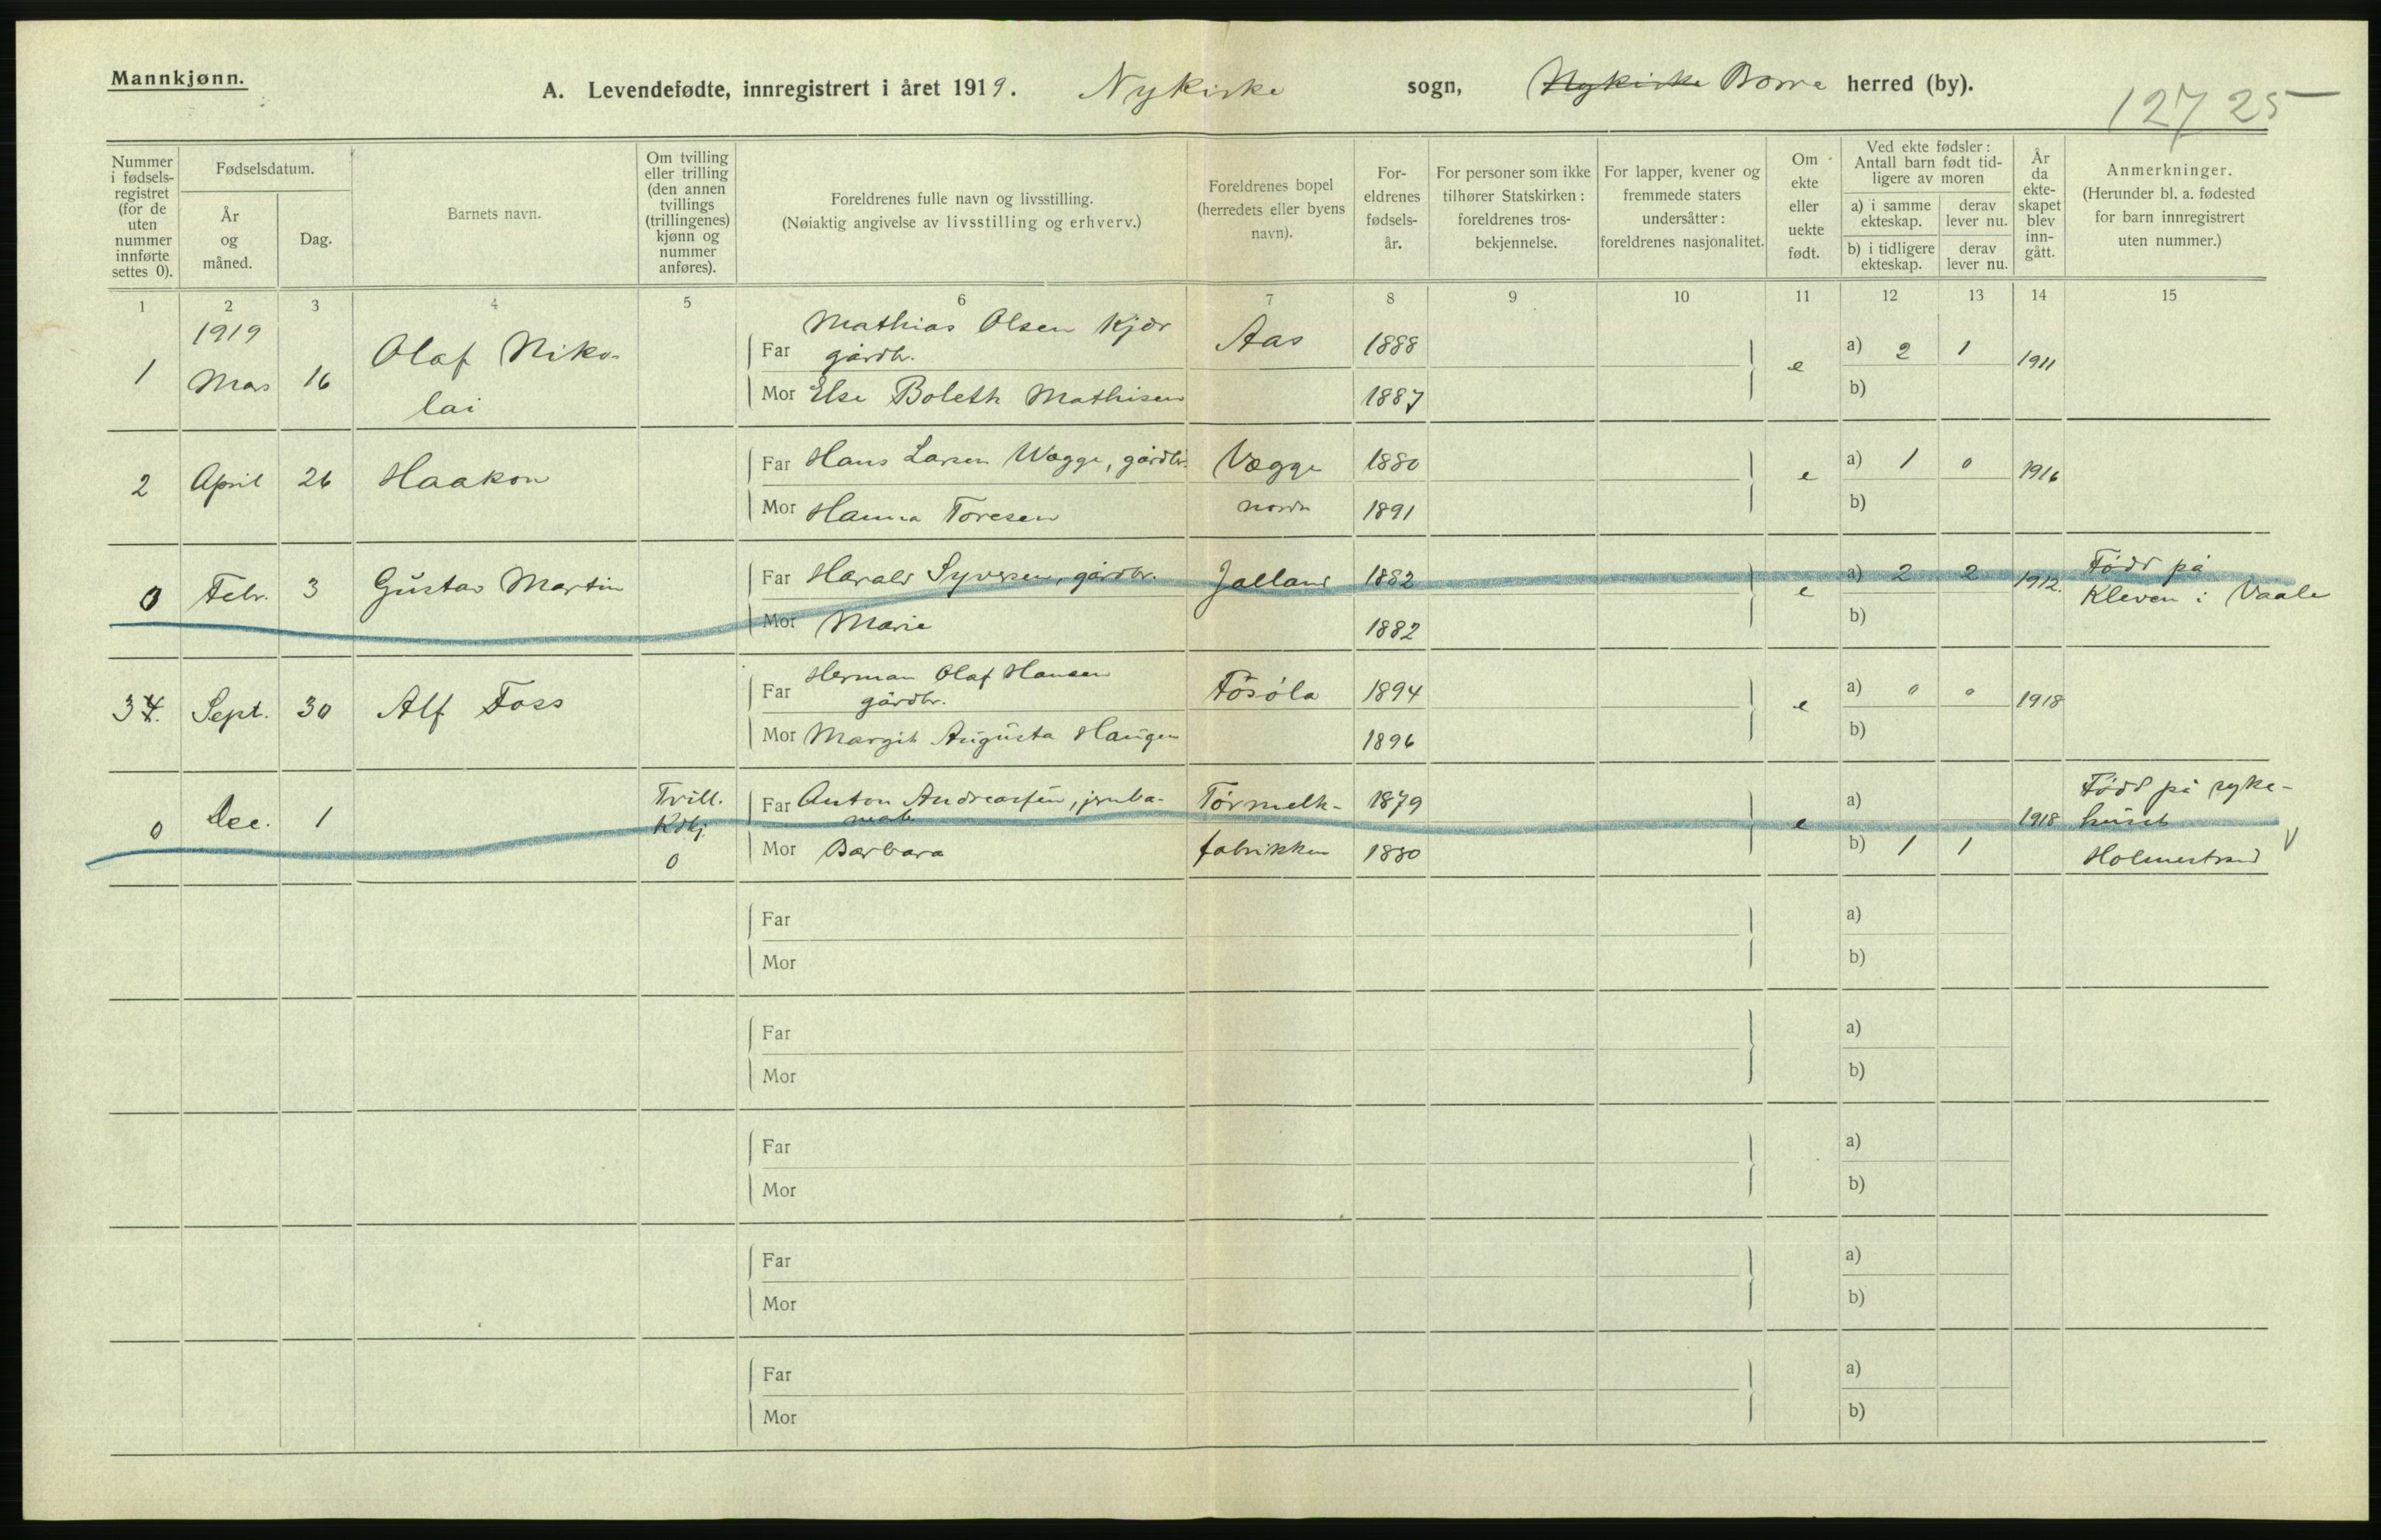 Mannkjønn.
A. Levendefødte, innregistrert i året 1919. Nykirke sogn, Nykirke Borre herred (by).
12725
Nummer i fødsels-registret (for de uten nummer innførte settes 0).
Fødselsdatum.
År og måned.
Dag.
Barnets navn.
Om tvilling eller trilling (den annen tvillings (trillingenes) kjønn og nummer anføres).
Foreldrenes fulle navn og livsstilling.
(Nøiaktig angivelse av livsstilling og erhverv.)
Foreldrenes bopel (herredets eller byens navn).
For-eldrenes fødsels-år.
For personer som ikke tilhører Statskirken: foreldrenes tros-bekjennelse.
For lapper, kvener og fremmede staters undersåtter: foreldrenes nasjonalitet.
Om ekte eller uekte født.
Ved ekte fødsler: Antall barn født tid-ligere av moren
a) i samme ekteskap.
derav lever nu.
b) i tidligere ekteskap.
derav lever nu.
År da ekte-skapet blev inn-gått.
Anmerkninger.
(Herunder bl. a. fødested for barn innregistrert uten nummer.)
1 2 3 4 5 6 7 8 9 10 11 12 13 14 15
1919
Mathias Olsen Kjær
1 Mars 16 Olaf Niko-lai Far gårdbr. Aas 1888 e a) 2 1 1911
Mor Else Boleth Mathisen 1887 b)
2 April 26 Haakon Far Hans Larsen Wægge, gårdbr. Vægge 1880 e a) 1 0 1916
Mor Hanna Toresen nordr 1891 b)
0 Febr. 3 Gustav Martin Far Harald Syversen, gårdbr. Jalland 1882 e a) 2 2 1912. Född på
Kleven i Vaale
Mor Marie 1882 b)
Herman Olaf Hansen
34. Sept. 30 Alf Foss Far gårdbr. Fosöla 1894 e a) 0 0 1918
Mor Margit Augusta Haugen 1896 b)
0 Dec. 1 Tvill. Kdkj. 0 Far Anton Andreassen, jernba- Törmelk- 1879 e a) 1918 Född på syke-
huset
Mor Barbara fabrikken 1880 b) 1 1 Holmestrand V
Far a)
Mor b)
Far a)
Mor b)
Far a)
Mor b)
Far a)
Mor b)
Far a)
Mor b)